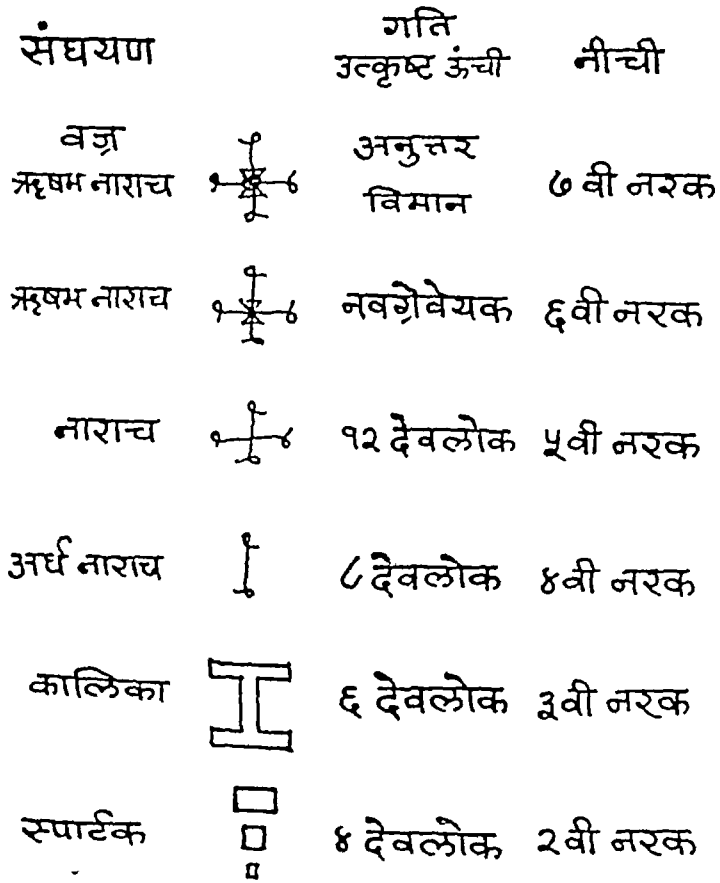 संघयण गति
उत्कृष्ट ऊंची नीची
वज्र
ऋषभ नाराच अनुत्तर
विमान ७ वी नरक
ऋषभ नाराच नवग्रेवेयक ६वी नरक
नाराच १२ देवलोक ५वी नरक
अर्ध नाराच ८ देवलोक ४वी नरक
कालिका ६ देवलोक ३वी नरक
स्पार्टक ४ देवलोक २वी नरक